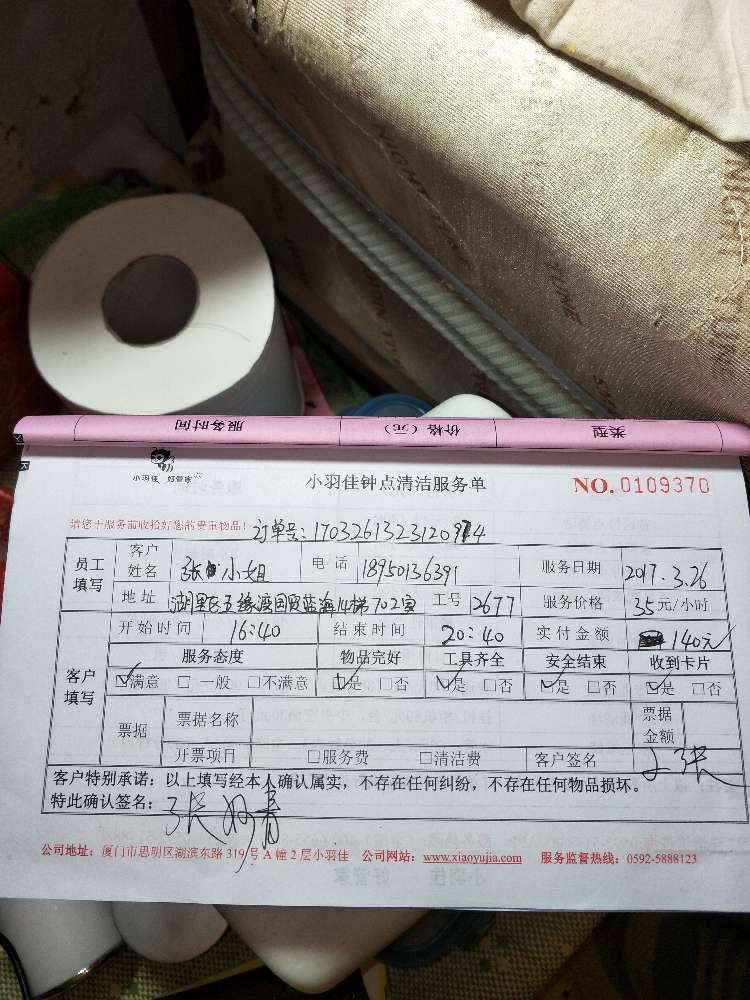 NIGHT TUNE
服务时间 价格（元） 类型
小羽佳 好管家
小羽佳钟点清洁服务单
NO.0109370
请您于服务前收拾好您的贵重物品！
订单号:1703261323120974
员工填写 客户姓名 张小姐 电话 18950136391 服务日期 2017.3.26
地址 湖里区五缘湾国贸蓝海14梯702室 工号 2677 服务价格 35元/小时
客户填写 开始时间 16:40 结束时间 20:40 实付金额 140元
服务态度 物品完好 工具齐全 安全结束 收到卡片
☑满意 □一般 □不满意 ☑是 □否 ☑是 □否 ☑是 □否 ☑是 □否
票据 票据名称 票据金额
开票项目 □服务费 □清洁费 客户签名
客户特别承诺：以上填写经本人确认属实，不存在任何纠纷，不存在任何物品损坏。
特此确认签名：
公司地址：厦门市思明区湖滨东路319号A幢2层小羽佳 公司网站：www.xiaoyujia.com 服务监督热线：0592-5888123